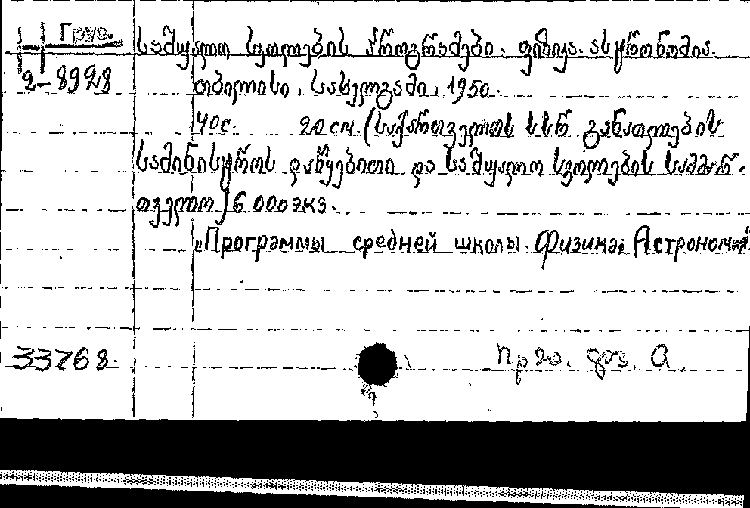 Груз.
2-8928
საშუალო სკოლების პროგრამები. ფიზიკა. ასტრონომია.
თბილისი, სახელგამი, 1950.
40с. 20см. (საქართველოს სსრ განათლების
სამინისტროს დაწყებითი და საშუალო სკოლების სამმარ-
თველო) 6.000экз.
„Программы средней школы. Физика. Астрономия"
33768.